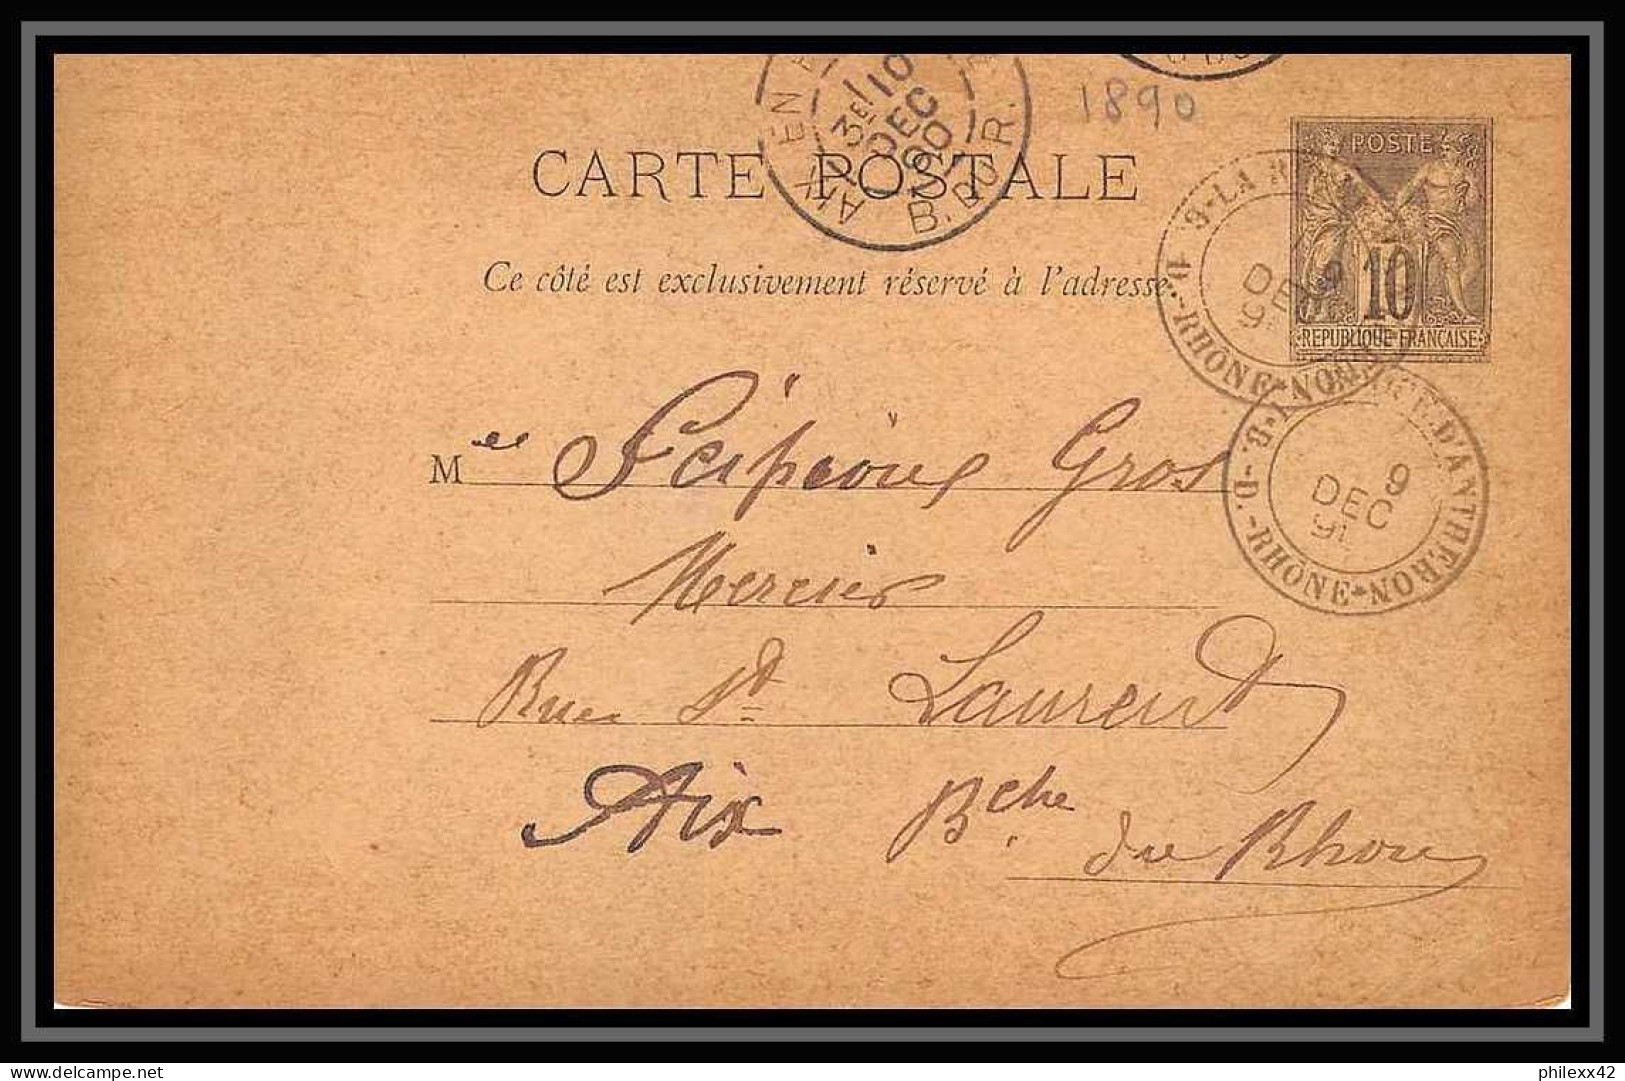 1890
AIX EN
3E 10
DEC
90
B. DU R.
POSTE
10
REPUBLIQUE FRANCAISE
CARTE POSTALE
Ce côté est exclusivement réservé à l'adresse.
9
DEC
B.-D.-RHONE-NON
D'ANTHERON
9
DEC
B.-D.-RHONE
Mee Scipions Gros
Mercier
Rue St Laurent
Aix Bche
du Rhone
philexx42
www.delcampe.net